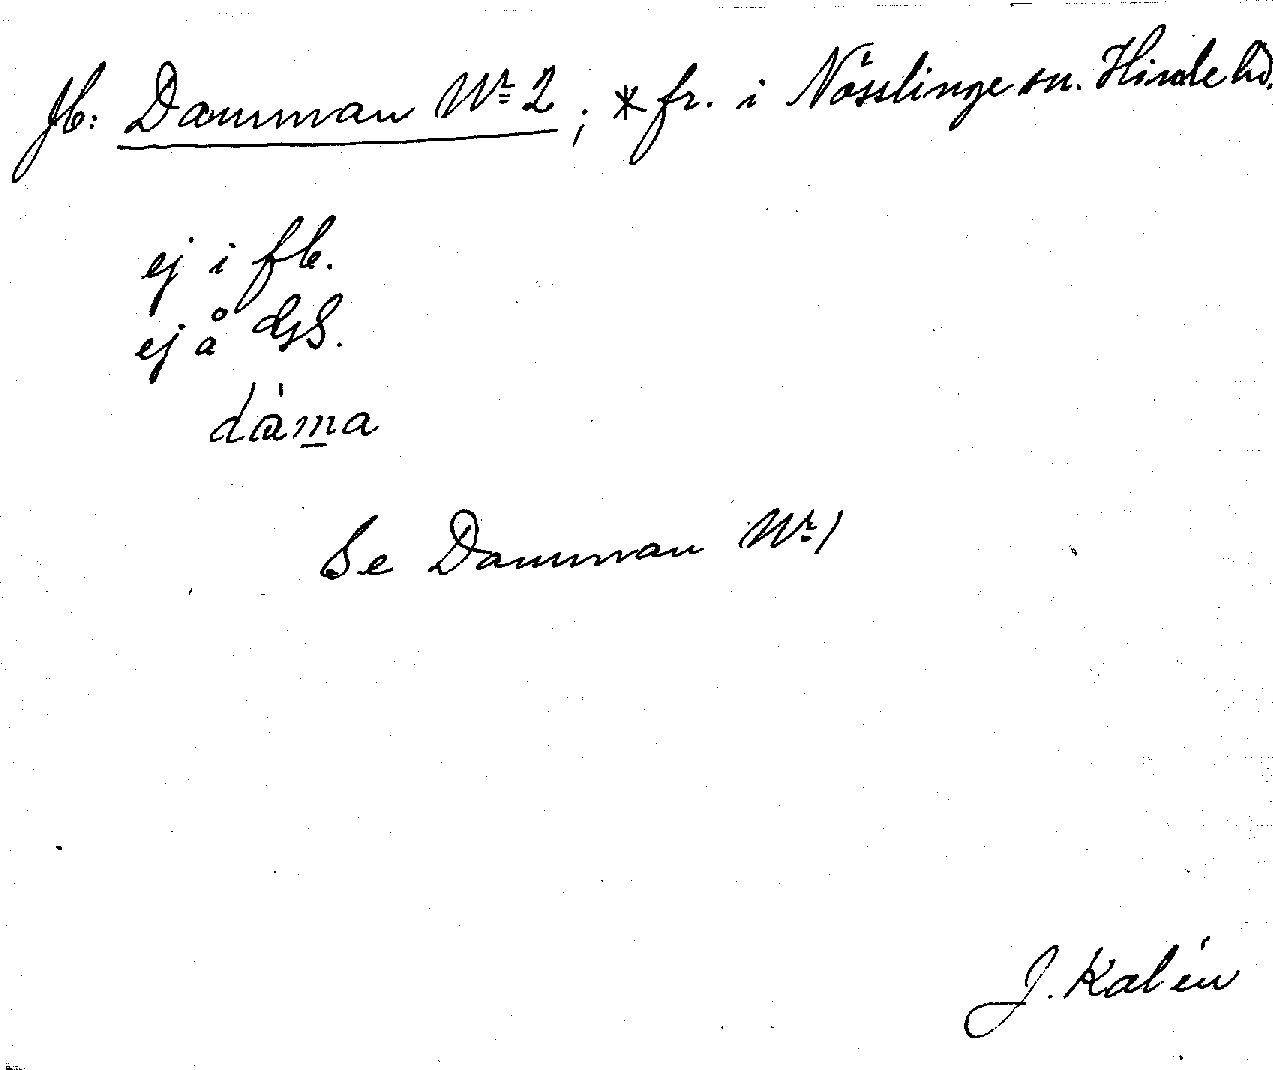 Jb: Damman Nr 2; *fr. i Nösslinge sn. Himle hd.
ej i fb.
ej å GS.
dàma
Se Damman Nr 1
J. Kalén